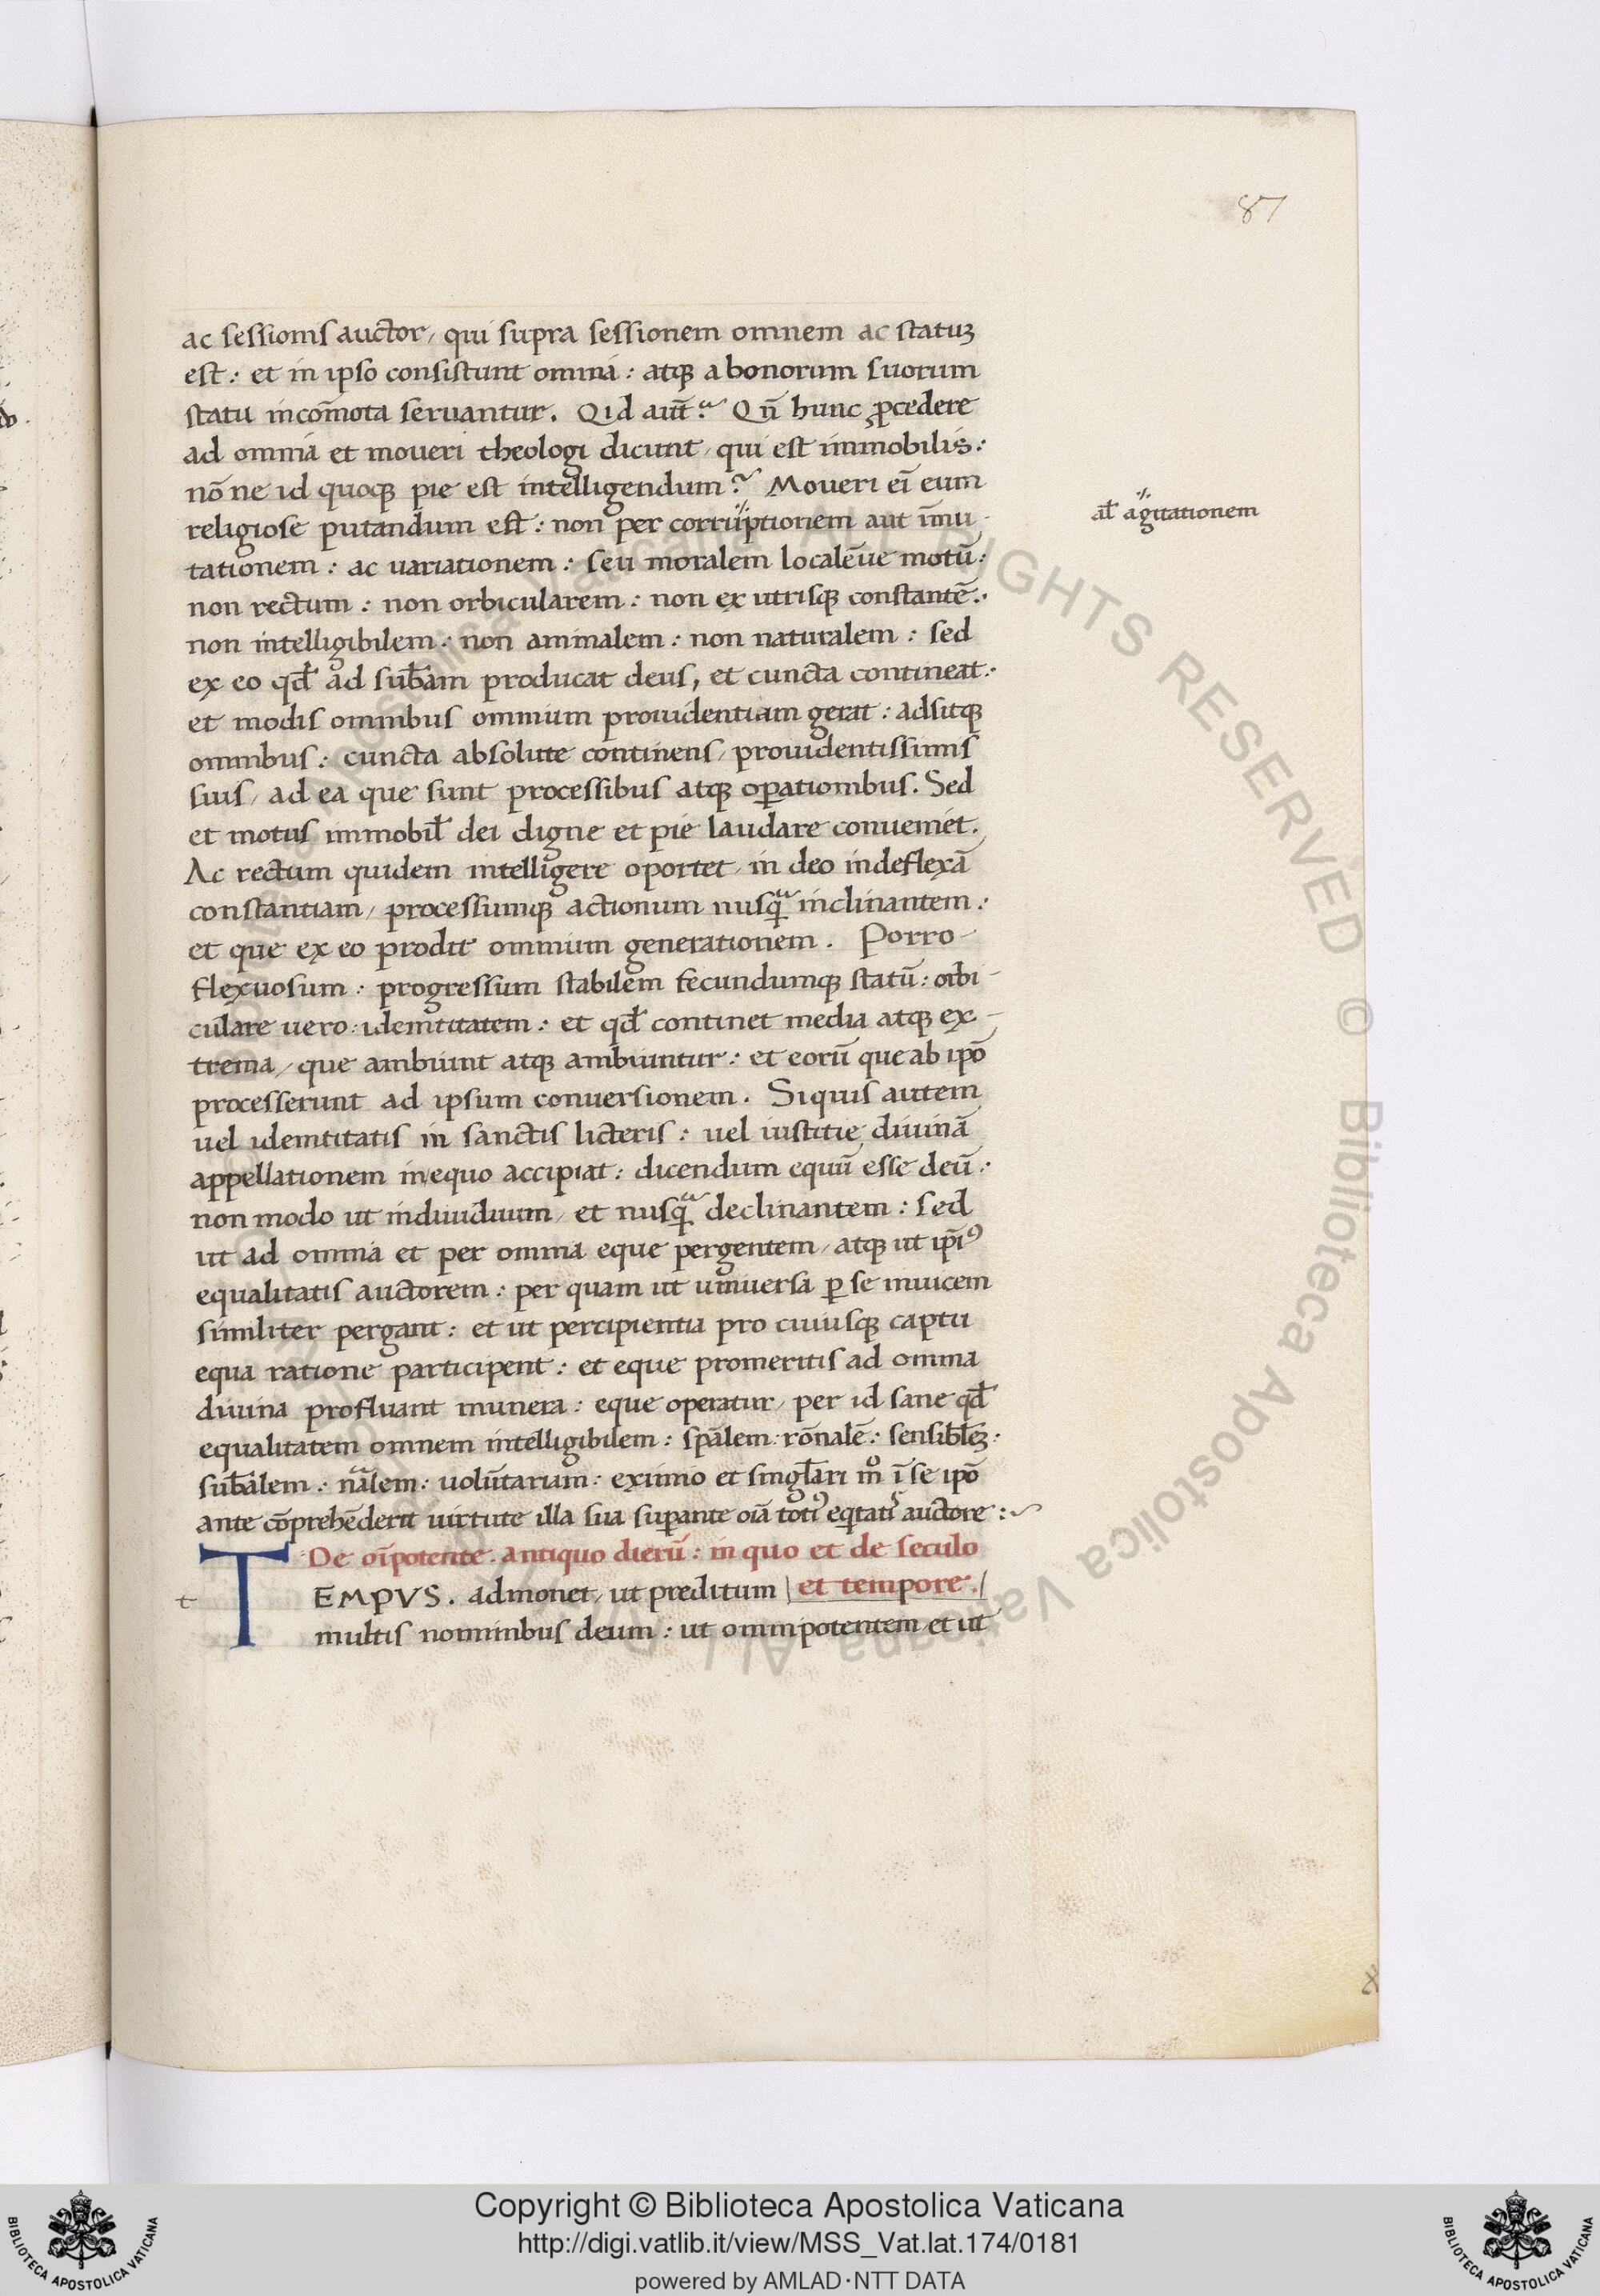 87
ac sessionis auctor, qui supra sessionem omnem ac statuꝫ
est: et in ipso consistunt omnia: atqꝫ a bonorum suorum
statu incōmota seruantur. Qid aut̄? Qn̄ hunc ꝓcedere
ad omnia et moueri theologi dicunt, qui est immobilis:
nō ne id quoqꝫ pie est intelligendum? Moueri ei̅ eum
religiose putandum est: non per corruptionem aut īmu-
al̄ agitationem
tationem: ac uariationem: seu moralem localēue motū:
non rectum: non orbicularem: non ex utrisqꝫ constantē:
non intelligibilem: non animalem: non naturalem: sed
ex eo qd̄ ad sub̄am producat deus, et cuncta contineat:
et modis omnibus omnium prouidentiam gerat: adsitqꝫ
omnibus: cuncta absolute continens, prouidentissimis
suis, ad ea que sunt processibus atqꝫ oꝑationibus. Sed
et motus immobil̄ dei digne et pie laudare conueniet.
Ac rectum quidem intelligere oportet, in deo indeflexā
constantiam, processumqꝫ actionum nusqᷓ inclinantem:
et que ex eo prodit omnium generationem. Porro
flexuosum: progressum stabilem fecundumqꝫ statū: orbi-
culare uero: idemtitatem: et qd̄ continet media atqꝫ ex-
trema, que ambiunt atqꝫ ambiuntur: et eorū que ab ip̄o
processerunt ad ipsum conuersionem. Siquis autem
uel idemtitatis in sanctis licteris: uel iustitie diuinā
appellationem in equo accipiat: dicendum equū esse deū:
non modo ut indiuiduum, et nusqᷓ declinantem: sed
ut ad omnia et per omnia eque pergentem, atqꝫ ut ip̄iꝰ
equalitatis auctorem: per quam ut uniuersa ꝑ se inuicem
similiter pergant: et ut percipientia pro cuiusqꝫ captu
equa ratione participent: et eque promeritis ad omnia
diuina profluant munera: eque operatur, per id sane qd̄
equalitatem omnem intelligibilem: sp̄alem: rōnalē: sensibl̄eꝫ:
sub̄alem: nāl̄em: uolūtariam: eximio et singl̄ari mͦ ī se ip̄o
ante cōprehēderit uirtute illa sua suꝑante oīa totiꝰ eqͣtatꝭ auctore:
De oīpotente. antiquo dierū: in quo et de seculo
t
TEMPVS. admonet, ut preditum | et tempore. |
multis nominibus deum: ut omnipotentem et ut
Copyright © Biblioteca Apostolica Vaticana
http://digi.vatlib.it/view/MSS_Vat.lat.174/0181
powered by AMLAD·NTT DATA
BIBLIOTECA APOSTOLICA VATICANA
BIBLIOTECA APOSTOLICA VATICANA